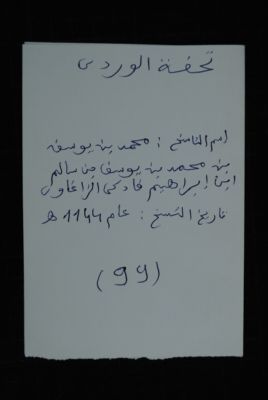 تحفة الوردي
اسم الناسخ : محمد بن يوسف
بن محمد بن يوسف بن سالم
ابن إبراهيم
تاريخ النسخ : عام 1144 هـ
(99)